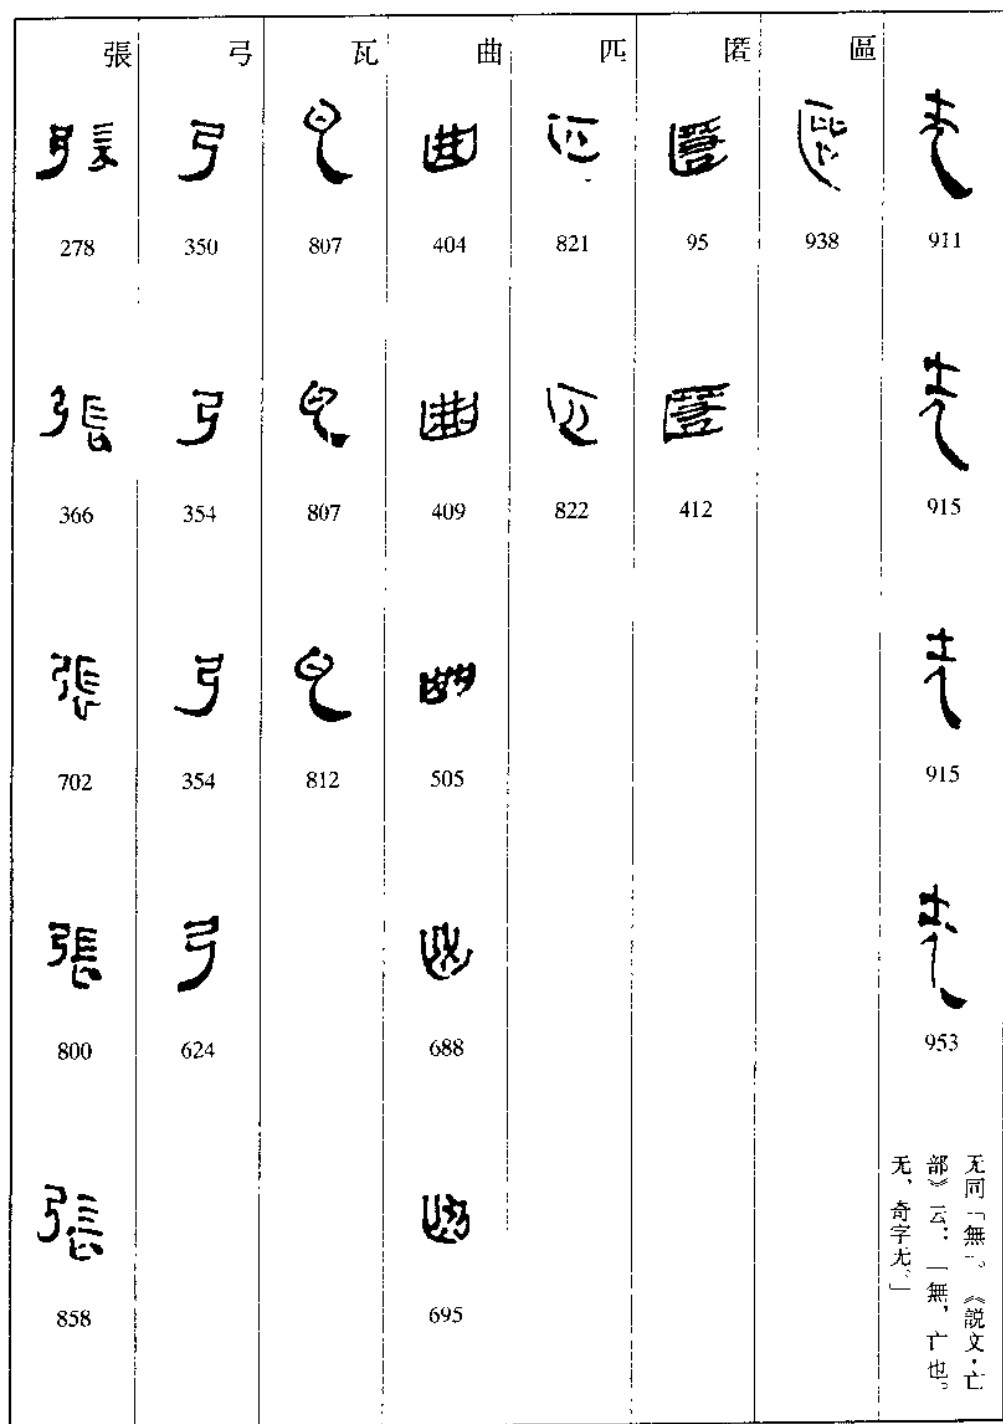 911
915
915
953
无同「無」。《説文·亡
部》云：「無，亡也。
无，奇字无。」
區
938
匿
95
412
匹
821
822
曲
404
409
505
688
695
瓦
807
807
812
弓
350
354
354
624
張
278
366
702
800
858